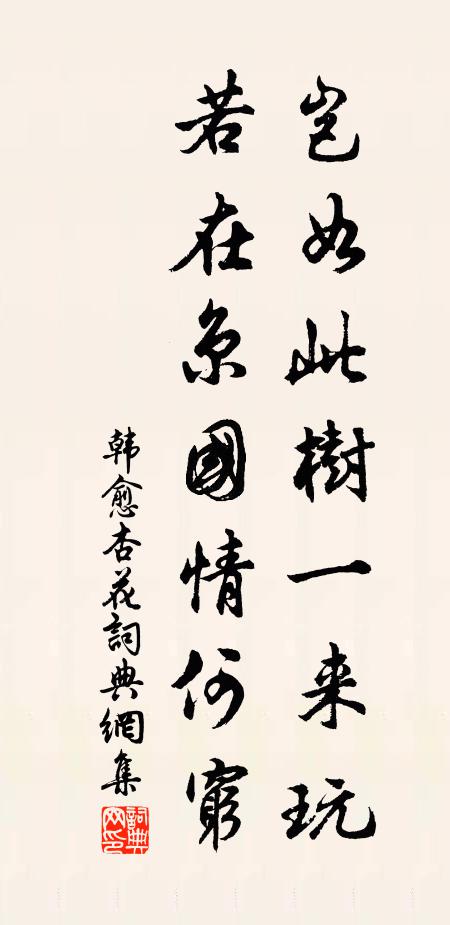 岂如此樹一来玩
若在京國情何窮
韩愈杏花詞典網集
詞典网印